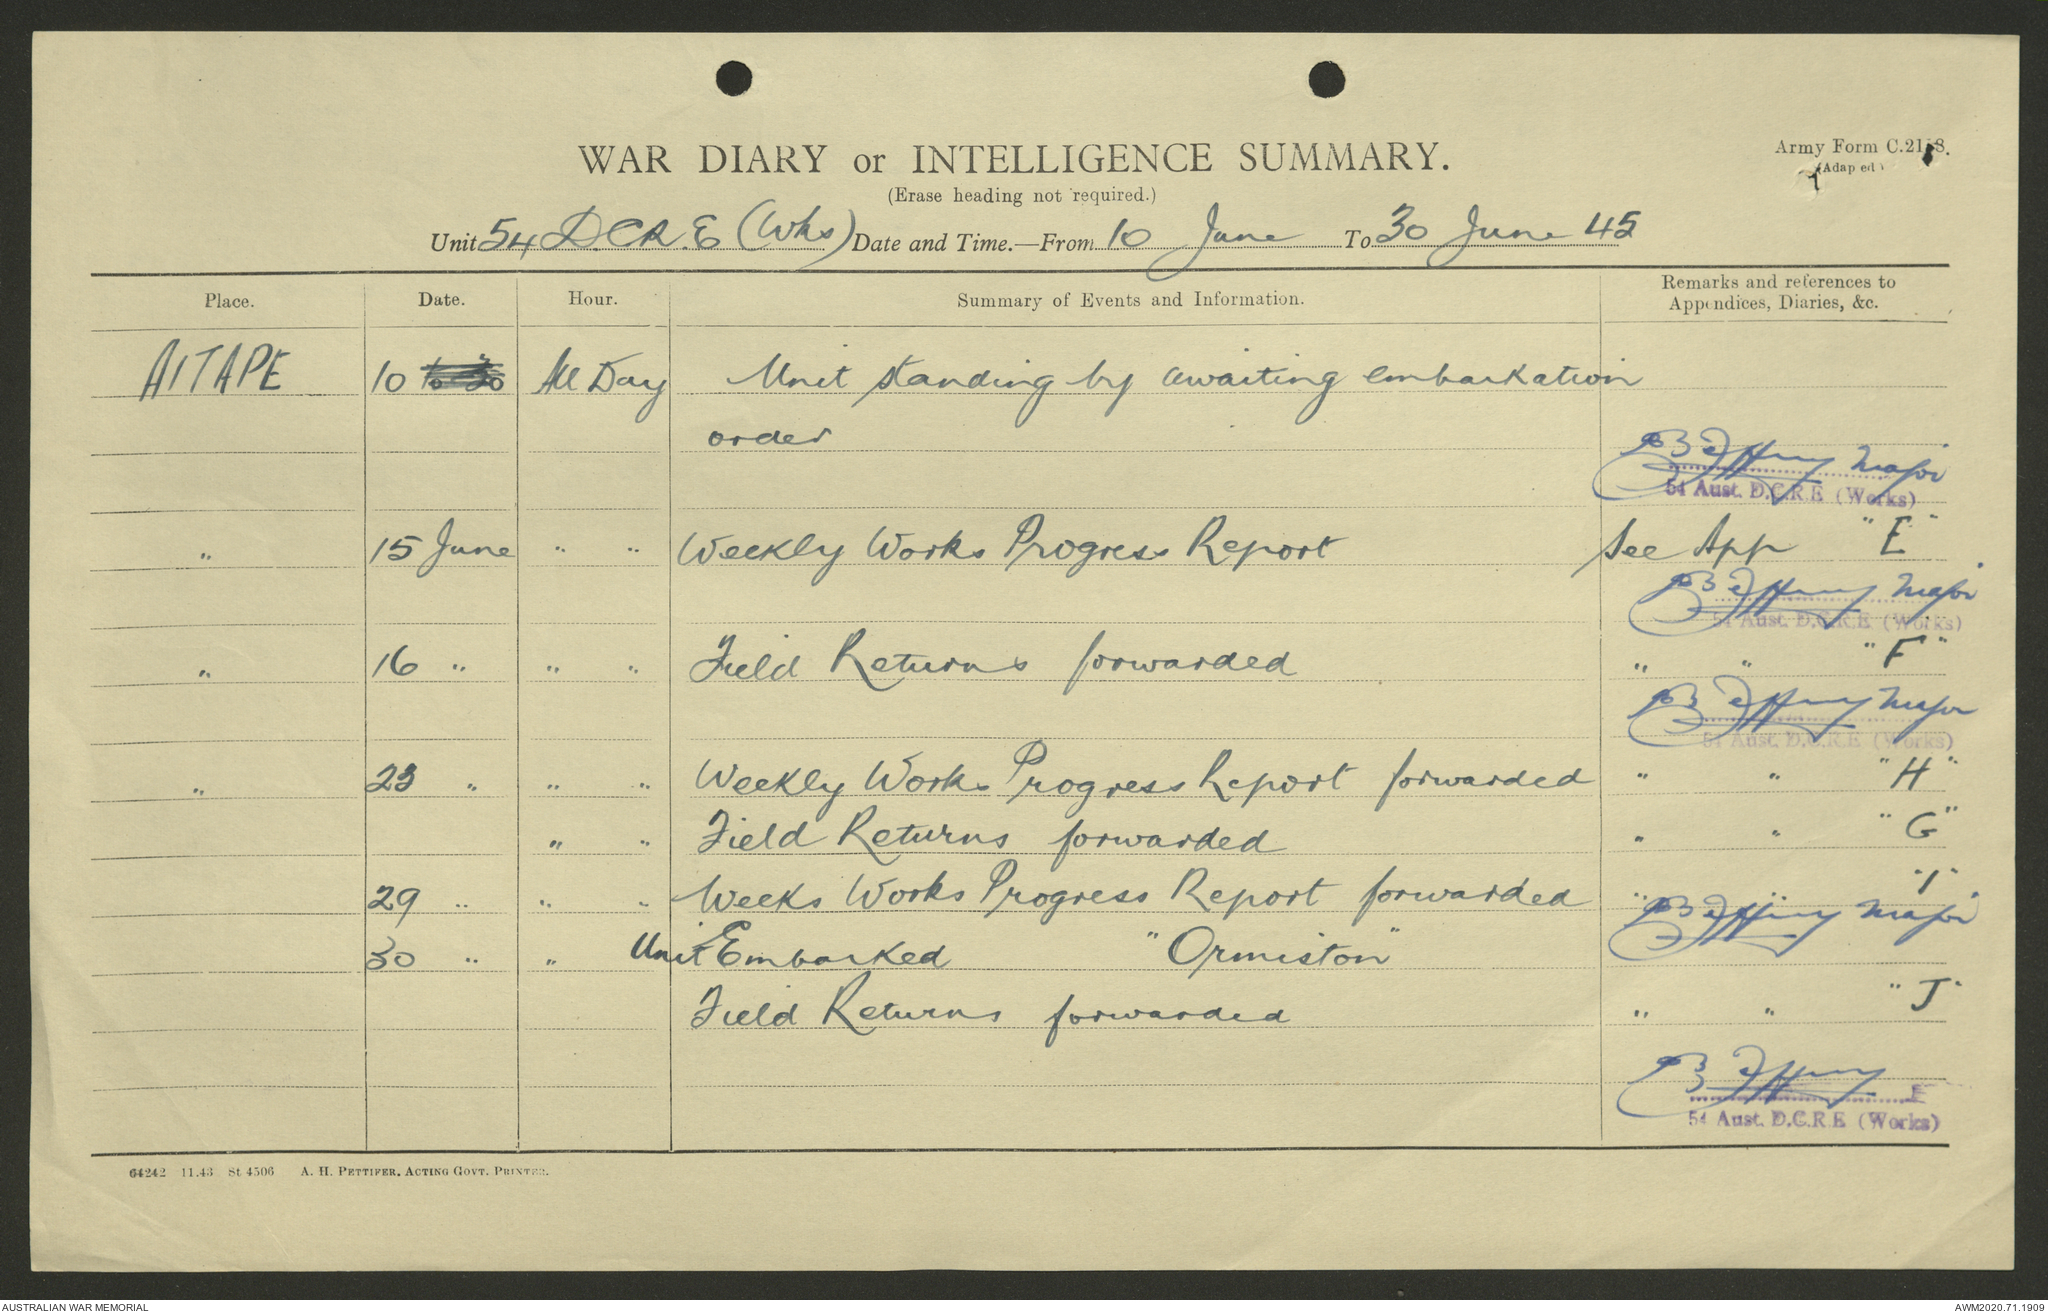 WAR DIARY or INTELLIGENCE SUMMARY.
(Erase heading not required.)
Army Form C.2118.
(Adap ed)
Unit 54 D.C.R.E (Wks) Date and Time.—From 10 June To 30 June 45
Place. Date. Hour. Summary of Events and Information. Remarks and references to Appendices, Diaries, &c.
AITAPE 10 to 30 All Day Unit standing by awaiting embarkation
order
Major
54 Aust. D.C.R.E (Works)
" 15 June " " Weekly Works Progress Report See App "E"
Major
54 Aust. D.C.R.E (Works)
" 16 " " " Field Returns forwarded " " "F"
Major
54 Aust. D.C.R.E (Works)
" 23 " " " Weekly Works Progress Report forwarded " " "H"
" " Field Returns forwarded " " "G"
29 " " " Weeks Works Progress Report forwarded " " "I"
Major
30 " " Unit Embarked "Ormiston"
Field Returns forwarded " " "J"
54 Aust. D.C.R.E (Works)
64242 11.43 St 4506 A. H. PETTIFER, ACTING GOVT. PRINTER.
AUSTRALIAN WAR MEMORIAL
AWM2020.71.1909